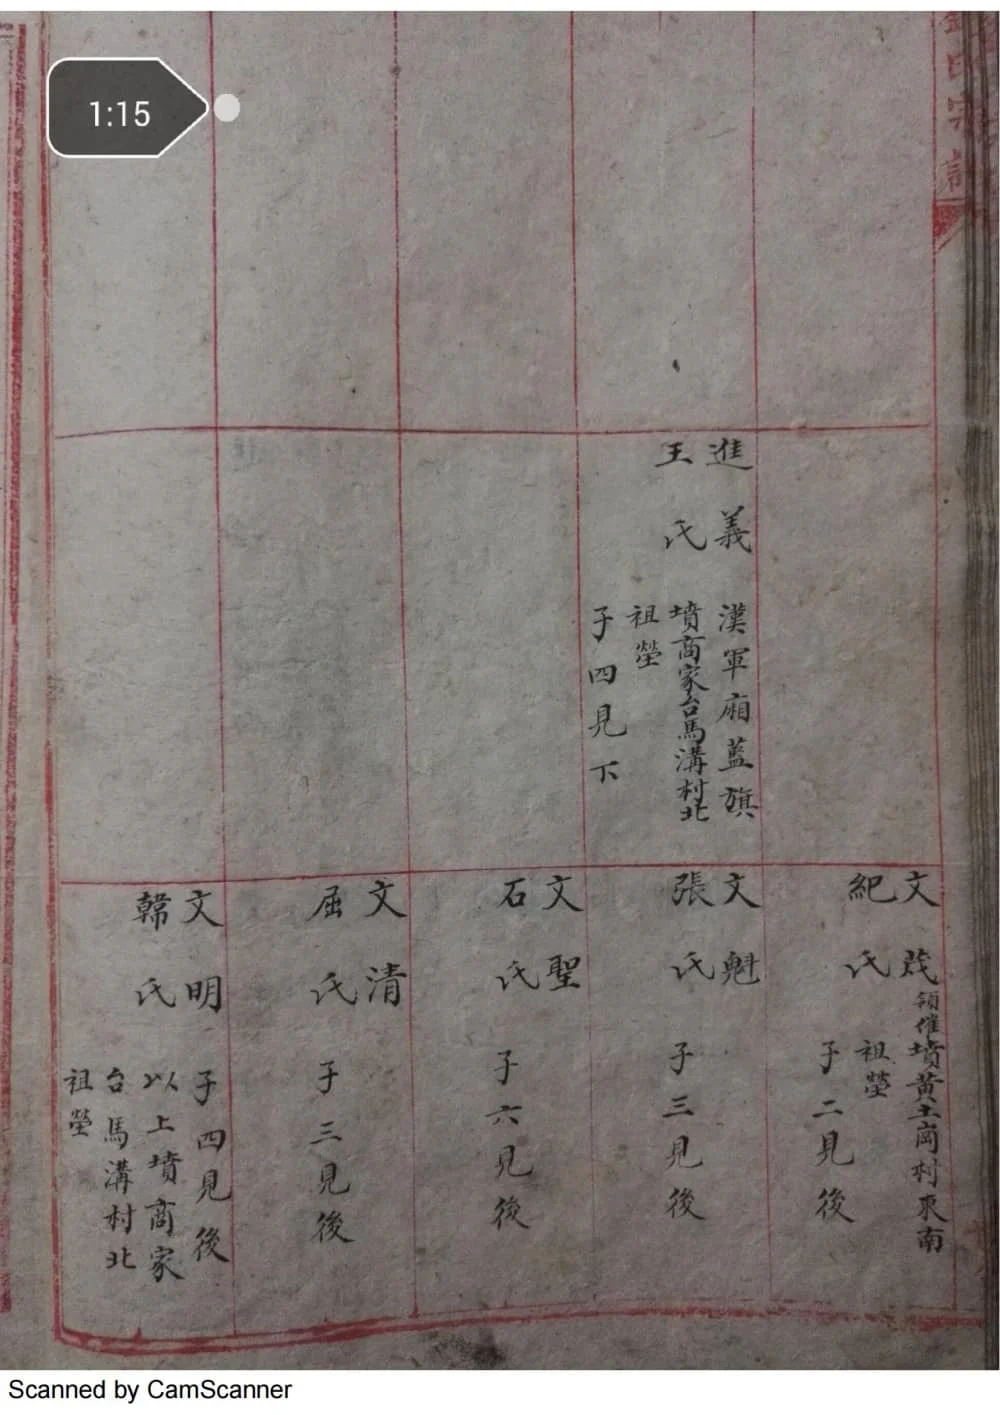 1:15
氏宗譜
進義
王氏
漢軍廂藍旗
墳商家台馬溝村北
祖塋
子四見下
文茂
紀氏
領催墳黃土崗村東南
祖塋
子二見後
文魁
張氏
子三見後
文聖
石氏
子六見後
文清
屈氏
子三見後
文明
韓氏
子四見後
以上墳商家
台馬溝村北
祖塋
Scanned by CamScanner